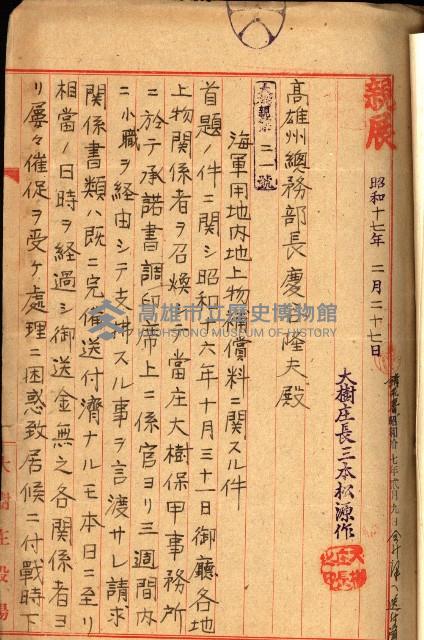 親展
昭和十七年 二月二十七日
大樹庄長三本松源作
高雄州總務部長慶谷隆夫殿
海軍用地內地上物補償料ニ關スル件
首題ノ件ニ関シ昭和十六年十月三十一日御廳各地
上物関係者ヲ召喚シ當庄大樹保甲事務所
ニ於テ承諾書調印席上ニ係官ヨリ三週間內
ニ小職ヲ経由シテ支拂スル事ヲ言渡サレ請求
関係書類ハ既ニ完備送付濟ナルモ本日ニ至リ
相當ノ日時ヲ経過シ御送金無之各関係者ヨ
リ屢々催促ヲ受ケ處理ニ困惑致居候ニ付戰時下
大樹庄役場
高雄市立歷史博物館
KAOHSIUNG MUSEUM OF HISTORY